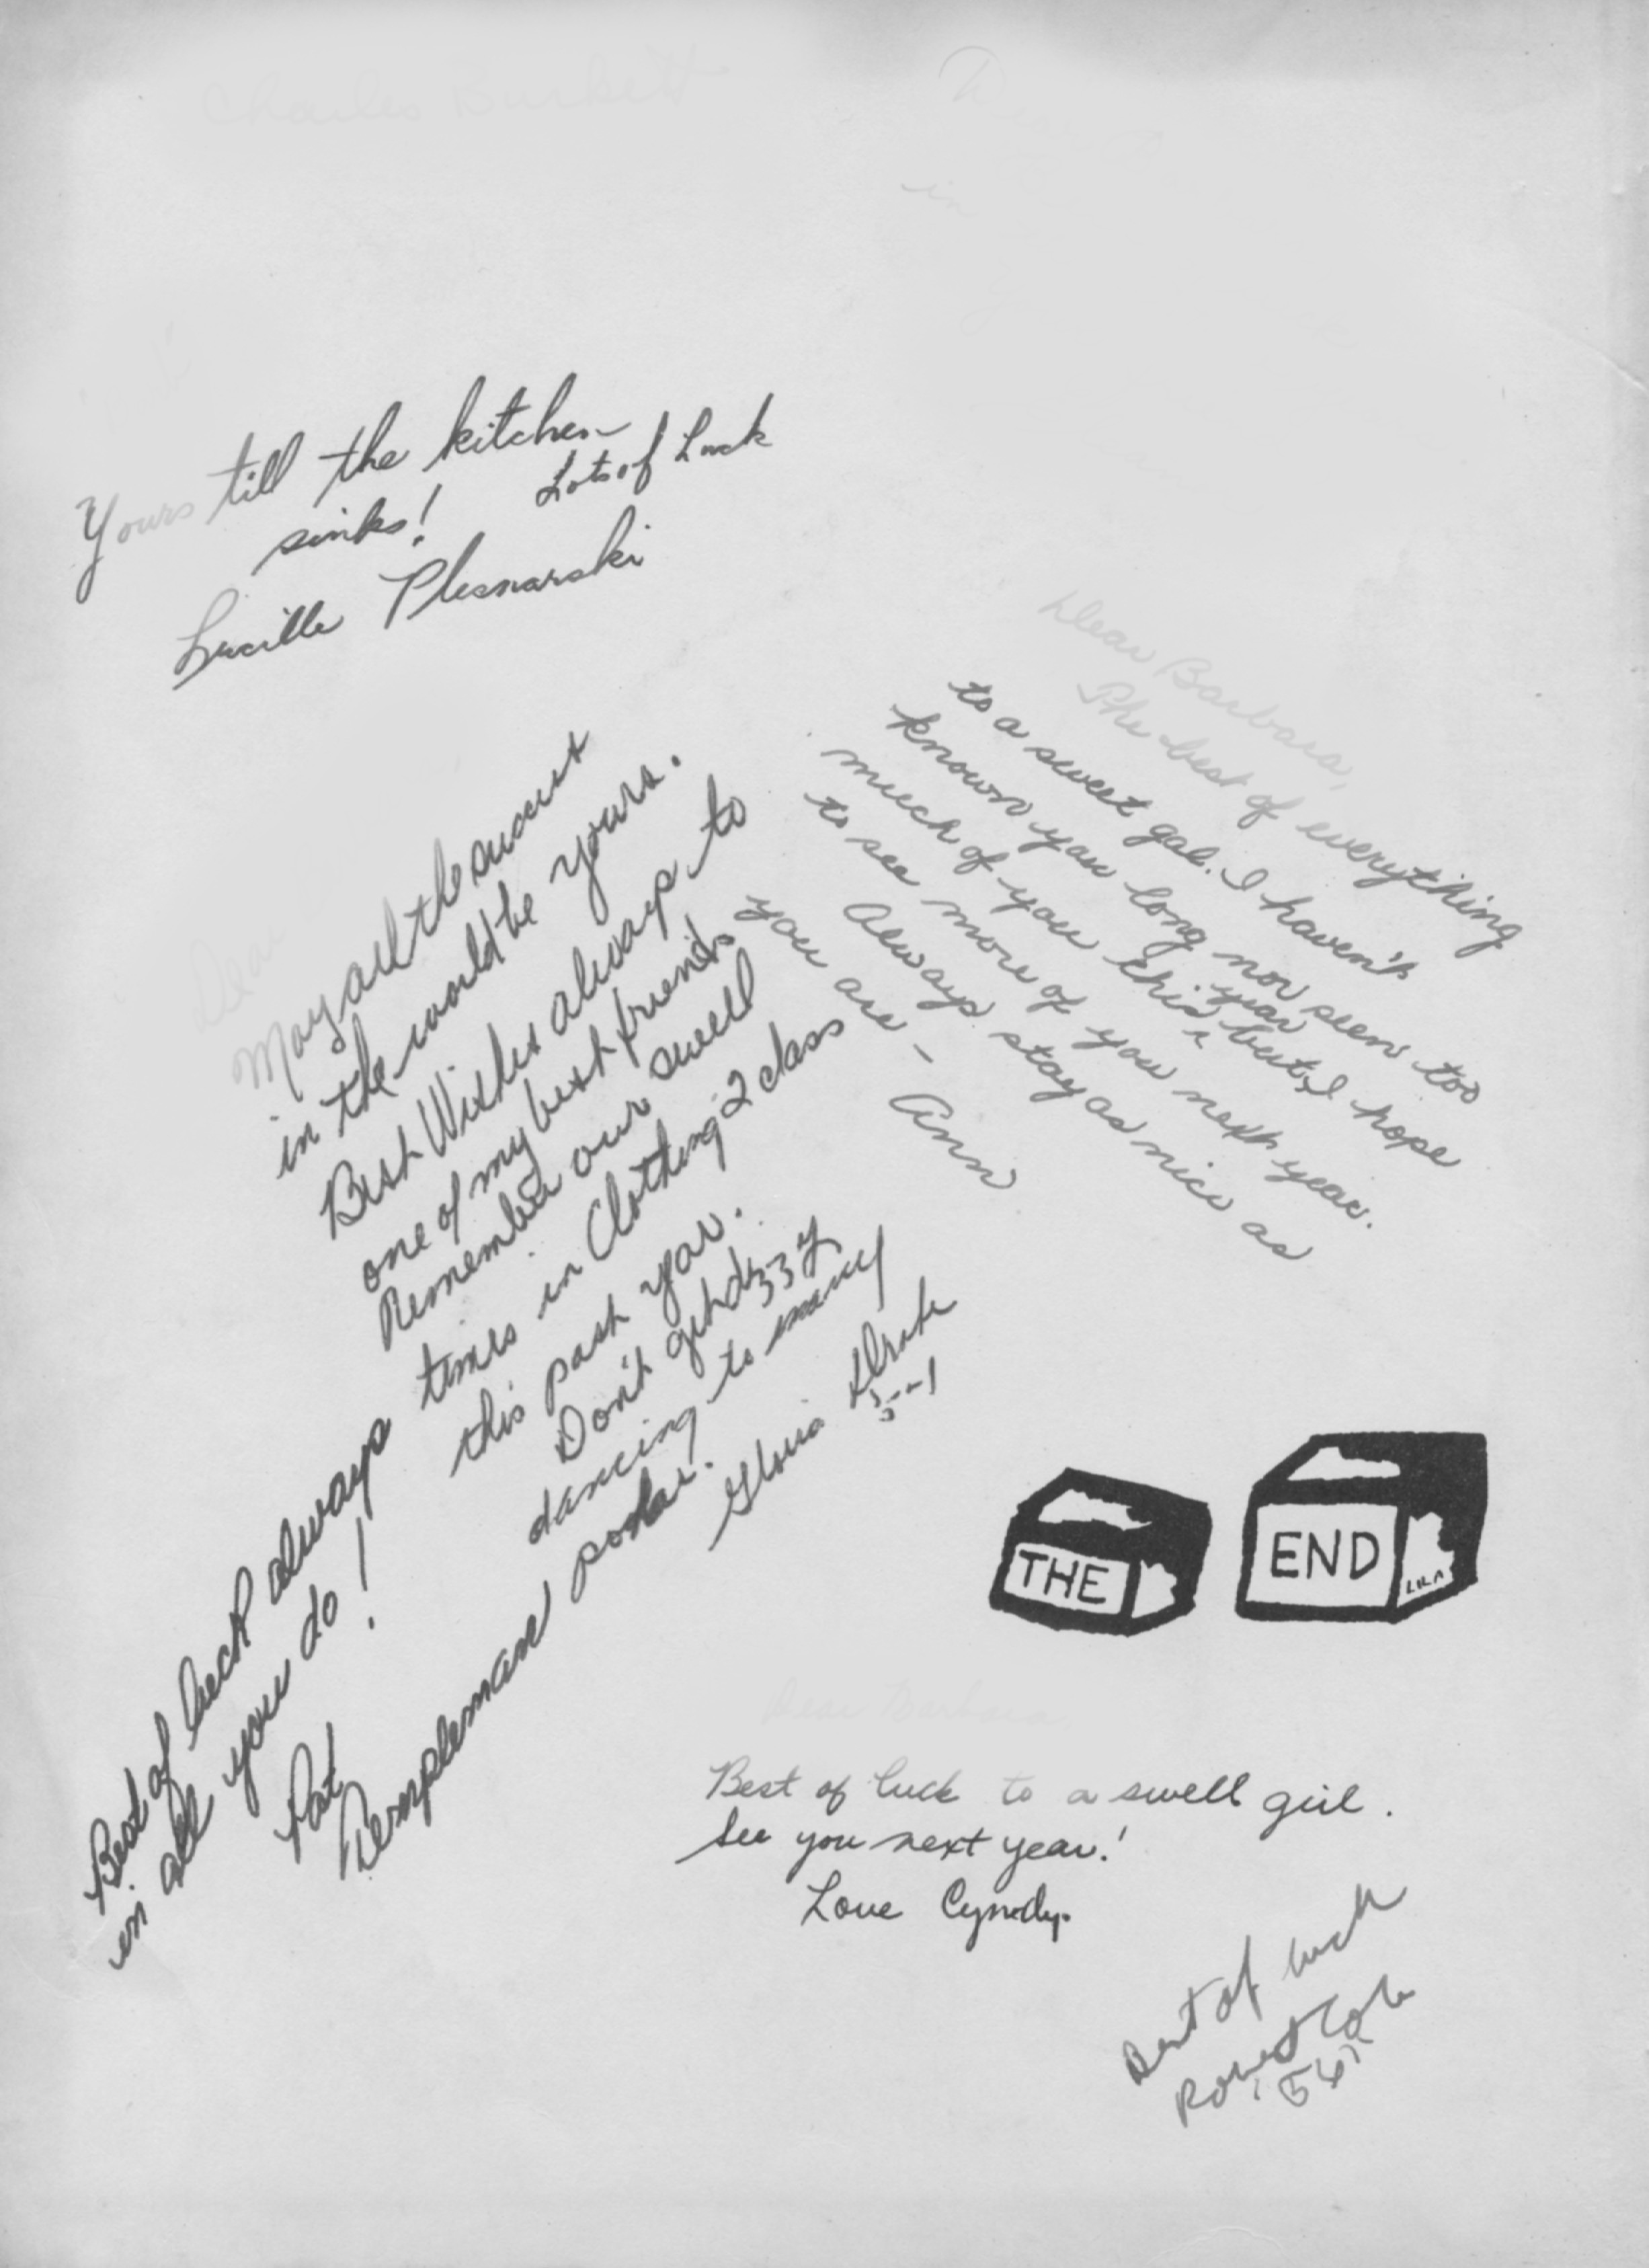 Charles Burkett
Yours till the kitchen
sinks!
Lots of Luck
Lucille Plesnarski
Dear Barbara,
The best of everything
to a sweet gal. I haven't
known you long nor seen too
much of you this year but I hope
to see more of you next year.
Always stay as nice as
you are -
Ann
Dear
May all the success
in the world be yours.
Best Wishes always to
one of my best friends.
Remember our swell
times in Clothing 2 class
this past year.
Don't get dizzy
dancing to many
polkas.
Gloria
55-1
Best of luck always
in all you do!
Pat
Dempleman
THE END
LILA
Dear Barbara,
Best of luck to a swell girl.
See you next year!
Love Cyndy.
Best of luck
Robert Cole